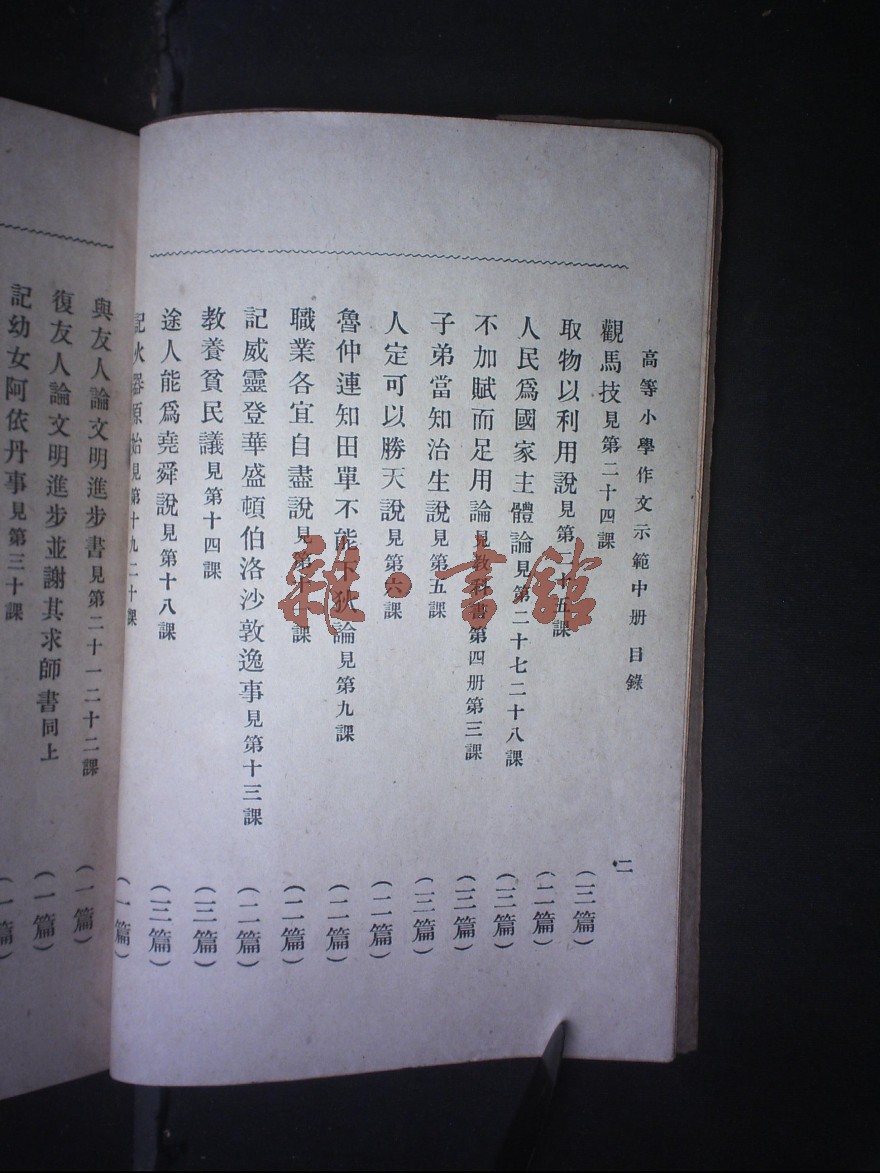 高等小學作文示範中册 目錄 二
觀馬技見第二十四課 (三篇)
取物以利用說見第二十五課 (二篇)
人民爲國家主體論見第二十七二十八課 (三篇)
不加賦而足用論見教科書第四册第三課 (三篇)
子弟當知治生說見第五課 (三篇)
人定可以勝天說見第六課 (二篇)
魯仲連知田單不能下狄論見第九課 (二篇)
職業各宜自盡說見第十課 (二篇)
記威靈登華盛頓伯洛沙敦逸事見第十三課 (二篇)
教養貧民議見第十四課 (三篇)
途人能爲堯舜說見第十八課 (三篇)
記火器原始見第十九二十課 (一篇)
與友人論文明進步書見第二十一二十二課 (一篇)
復友人論文明進步並謝其求師書同上 (一篇)
記幼女阿依丹事見第三十課 (一篇)
雜·書館